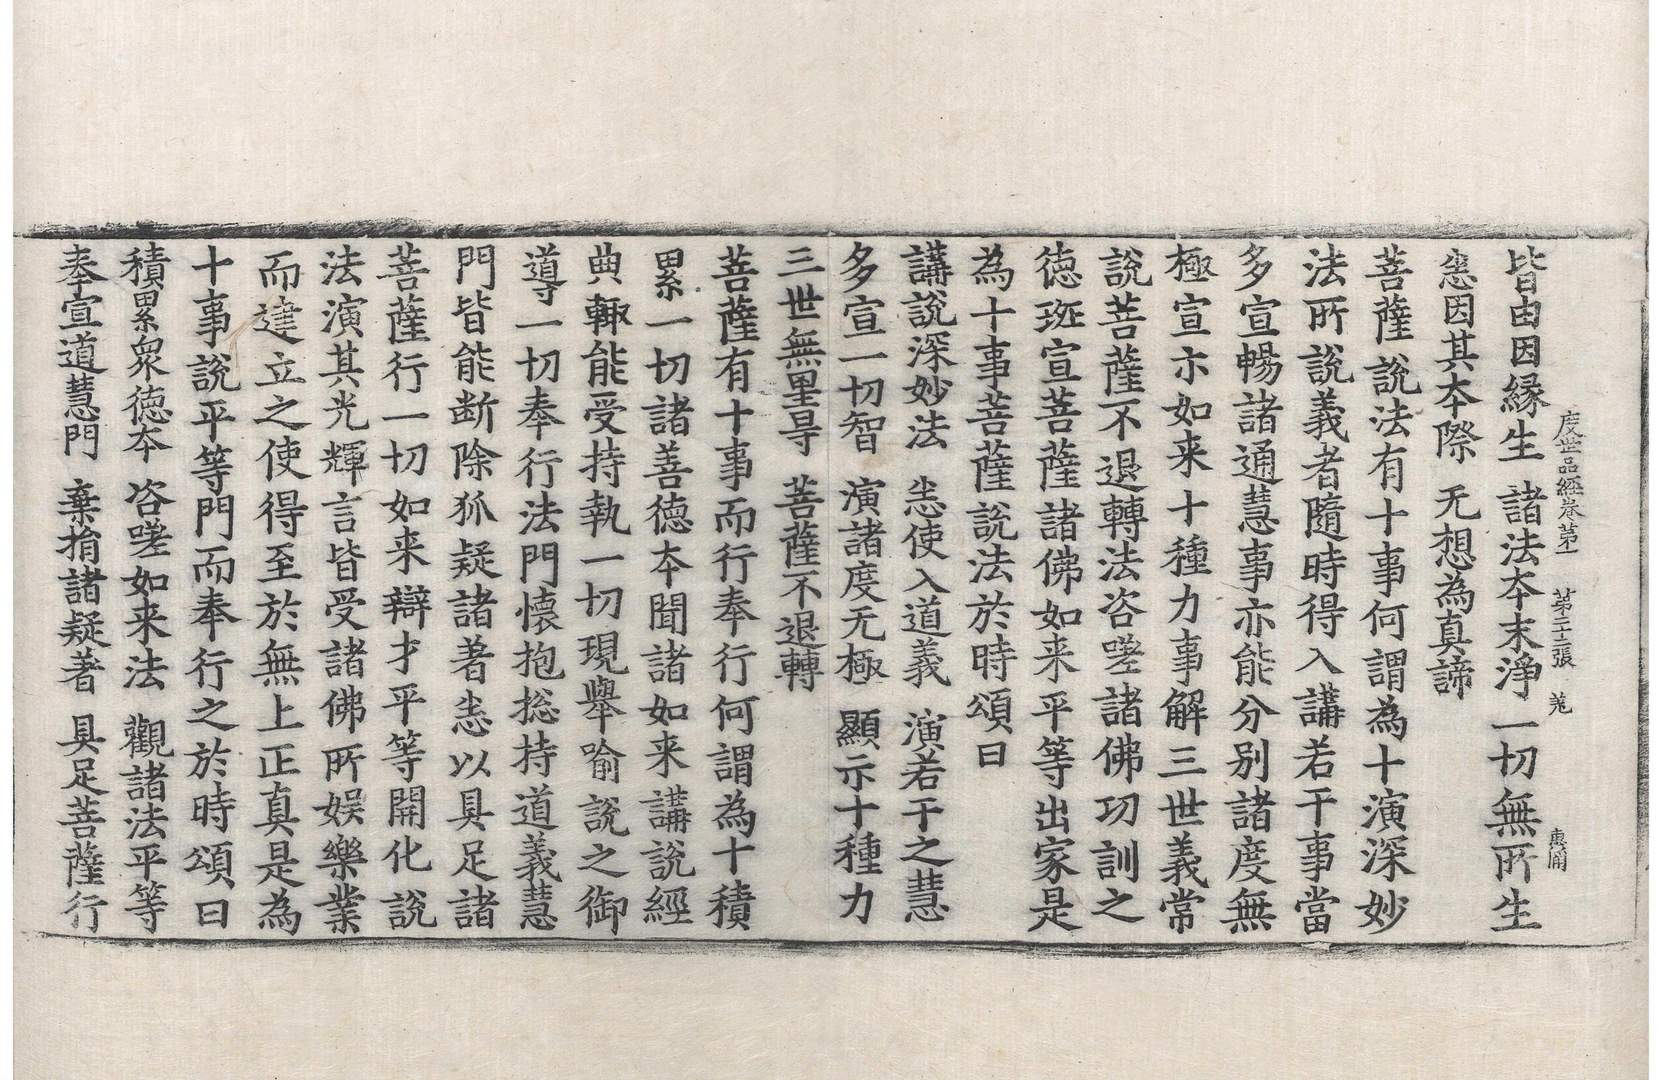 度世品経卷第一 第二十三張 羗 惠周
皆由因縁生 諸法本末淨 一切無所生
悉因其本際 无想為真諦
菩薩說法有十事何謂為十演深妙
法所說義者隨時得入講若干事當
多宣暢諸通慧事亦能分別諸度無
極宣示如来十種力事解三世義常
說菩薩不退轉法咨嗟諸佛功訓之
德班宣菩薩諸佛如来平等出家是
為十事菩薩說法於時頌曰
講說深妙法 悉使入道義 演若干之慧
多宣一切智 演諸度无極 顯示十種力
三世無罣㝵 菩薩不退轉
菩薩有十事而行奉行何謂為十積
累一切諸善德本聞諸如来講說經
典輙能受持執一切現舉喻說之御
導一切奉行法門懷抱捴持道義慧
門皆能断除狐疑諸著悉以具足諸
菩薩行一切如来辯才平等開化說
法演其光輝言皆受諸佛所娱樂業
而達立之使得至於無上正真是為
十事說平等門而奉行之於時頌曰
積累衆德本 咨嗟如来法 觀諸法平等
奉宣道慧門 棄捐諸疑著 具足菩薩行